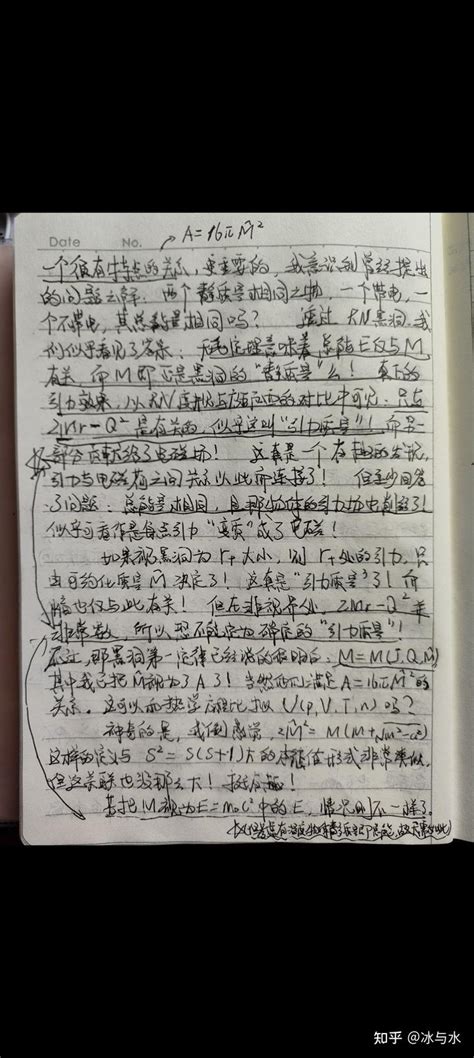 A=16πM̃²
Date No.
一个很有特点的关系,更重要的,我意识到曾经提出
的问题之解:两个静质量相同之物,一个带电,一
个不带电,其总能量相同吗? 通过RN黑洞,我
们似乎看见了答案:无毛定理意味着总能E仅与M
有关,而M即正是黑洞的"静质量"么! 真正的
引力效果,从RN度规与史瓦西的对比中可见:只与
2Mr-Q²是有关的,似乎这叫"引力质量"!而另一
部分贡献给了电磁场! 这真是一个有趣的发现,
引力与电磁荷之间关系以此而连接了! 但至少回答
了问题:总能量相同,且那物体的引力场也削弱了!
似乎可看作是每点引力"变质"成了电磁!
如果视黑洞为r₊大小,则r₊处的引力,只
由可约化质量M̃决定了!这真是"引力质量"了!而
熵也仅与此有关! 但在非视界处,2Mr-Q²并
非常数,所以恐不能定为确定的"引力质量"!
不过,那黑洞第一定律已经说的很明白:M=M(J,Q,M̃)
其中我已把M̃视为了A了!当然因为满足A=16πM̃²的
关系。这可以和热学应对比拟U(p,V,T,n)了吗?
神奇的是,我们感觉,2M̃²=M(M+√(M²-a²))
这样的定义与S²=S(S+1)ħ的本征值形式非常类似,
但这关联也没那么大!
若把M视为E=m₀c²中的E,情况则不一样了。